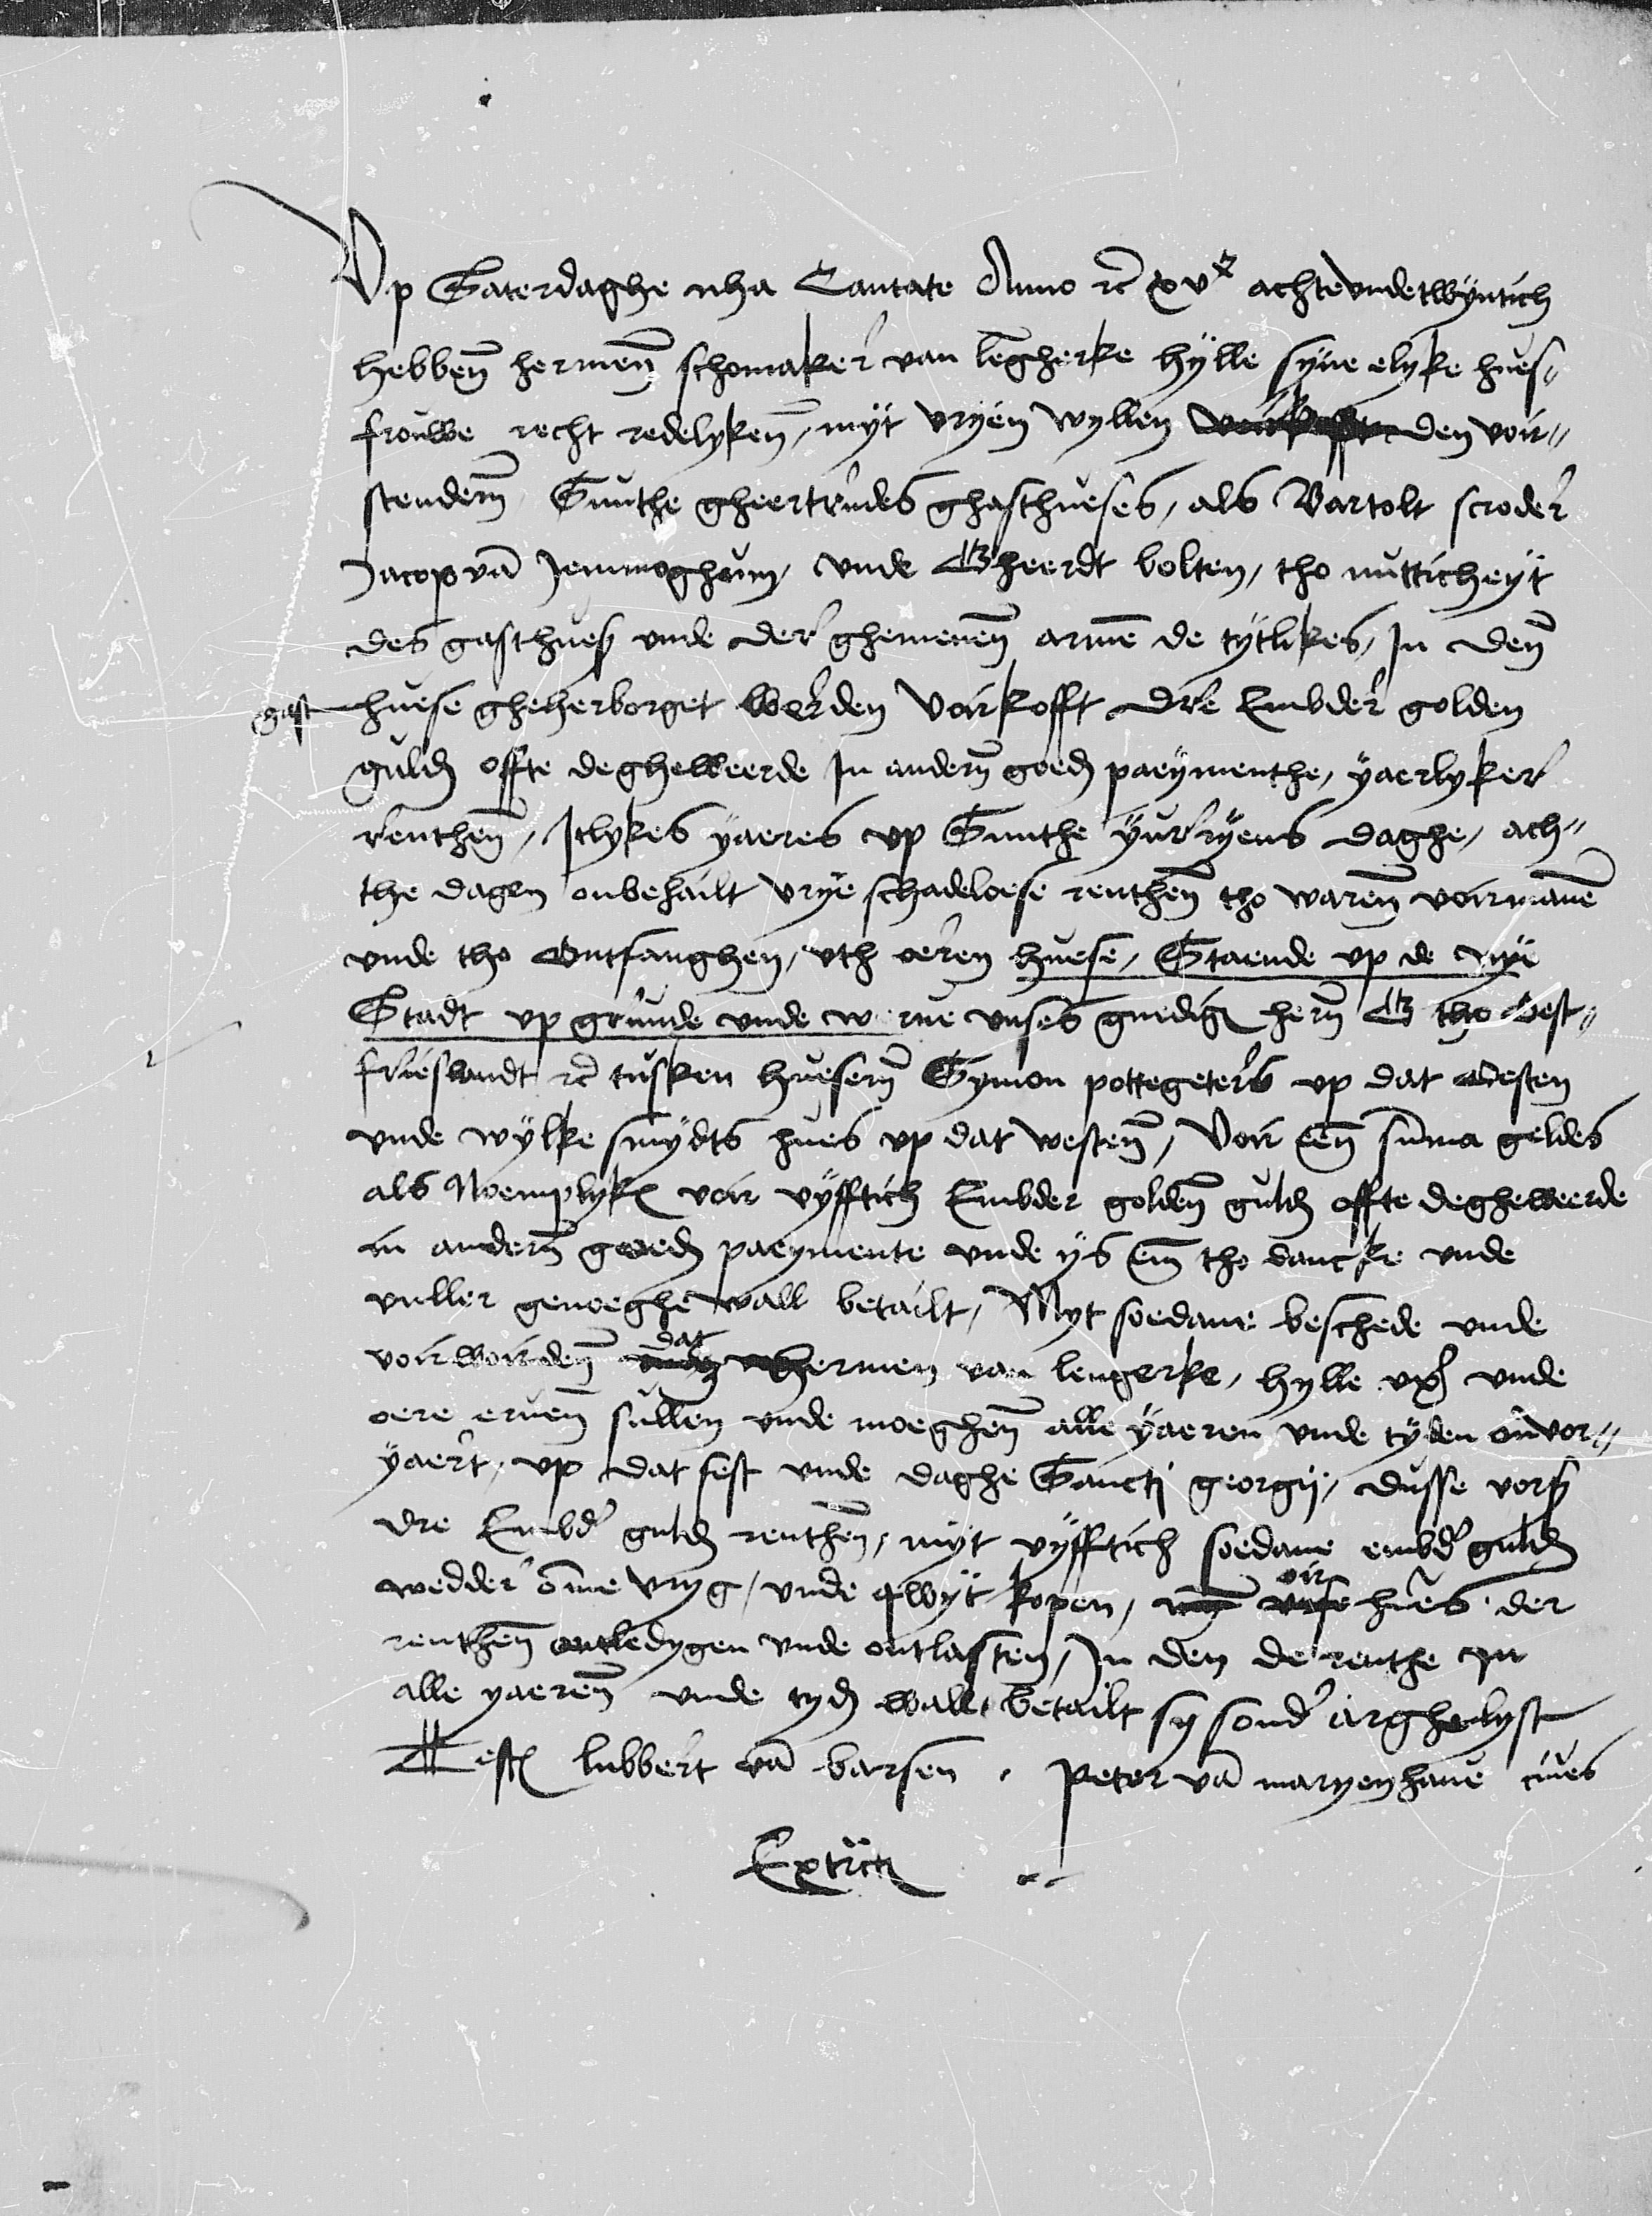 Vp Saterdaghe nha Cantate Anno rc xvc achteundetwyntich
hebben hermen schomaker van lengherke hylle syne elyke hues-
frouwe recht redelyken, myt vryen wyllen voirkofft den voir-
stendern Sunthe gheertrudes ghasthueses, als Bartolt scroder
Jacop van Jemmoghum, unde Gheerdt bolten, tho nutticheyt
des gasthues unde der ghemenen armen de tytlikes, In den
gast huese gheherborget werden voirkofft dre Embder golden
guld offte degheweerde In andern goed paeymenthe, yaerlyker
renthen, Itlykes yaeres up Sunthe yurryens daghe, ach-
the dagen onbehailt vrye schadeloese renthen tho waren voirmanen
unde tho Ontfanghen, uth oeren huese, Staende up de nye
Stadt up grunde unde w rue unses gnedig hern G tho Oest-
frieslandt rc tusken huesern Symon pottegeters up dat Oesten
unde wylke smydts hues up dat westen, Voir een summa geldes
als Noemplyk voir vyfftich Embder golden guld offte degheweerde
in andern goeden paeymente unde ys em tho dancke unde
vuller genoeghe wall betailt, Myt soedane beschede unde
voirwoirden dat hermen van lengerke, hylle ux unde
oere erven sullen unde moeghen alle yaeren unde tyden onvor-
yaert, up dat fest unde daghe Sancti georgij, dusse vors
dre Embd guld renthen, myt vyfftich soedane embd guld
wedder omme vryg, unde qwyt kopen, oir hues der
renthen ontledygen unde ontlasten, In den de renthe In
alle yaeren unde tyd wall betailt sy sonder arghelyst
Test lubbert van barsen . Peter van maryenhave cives
Extract